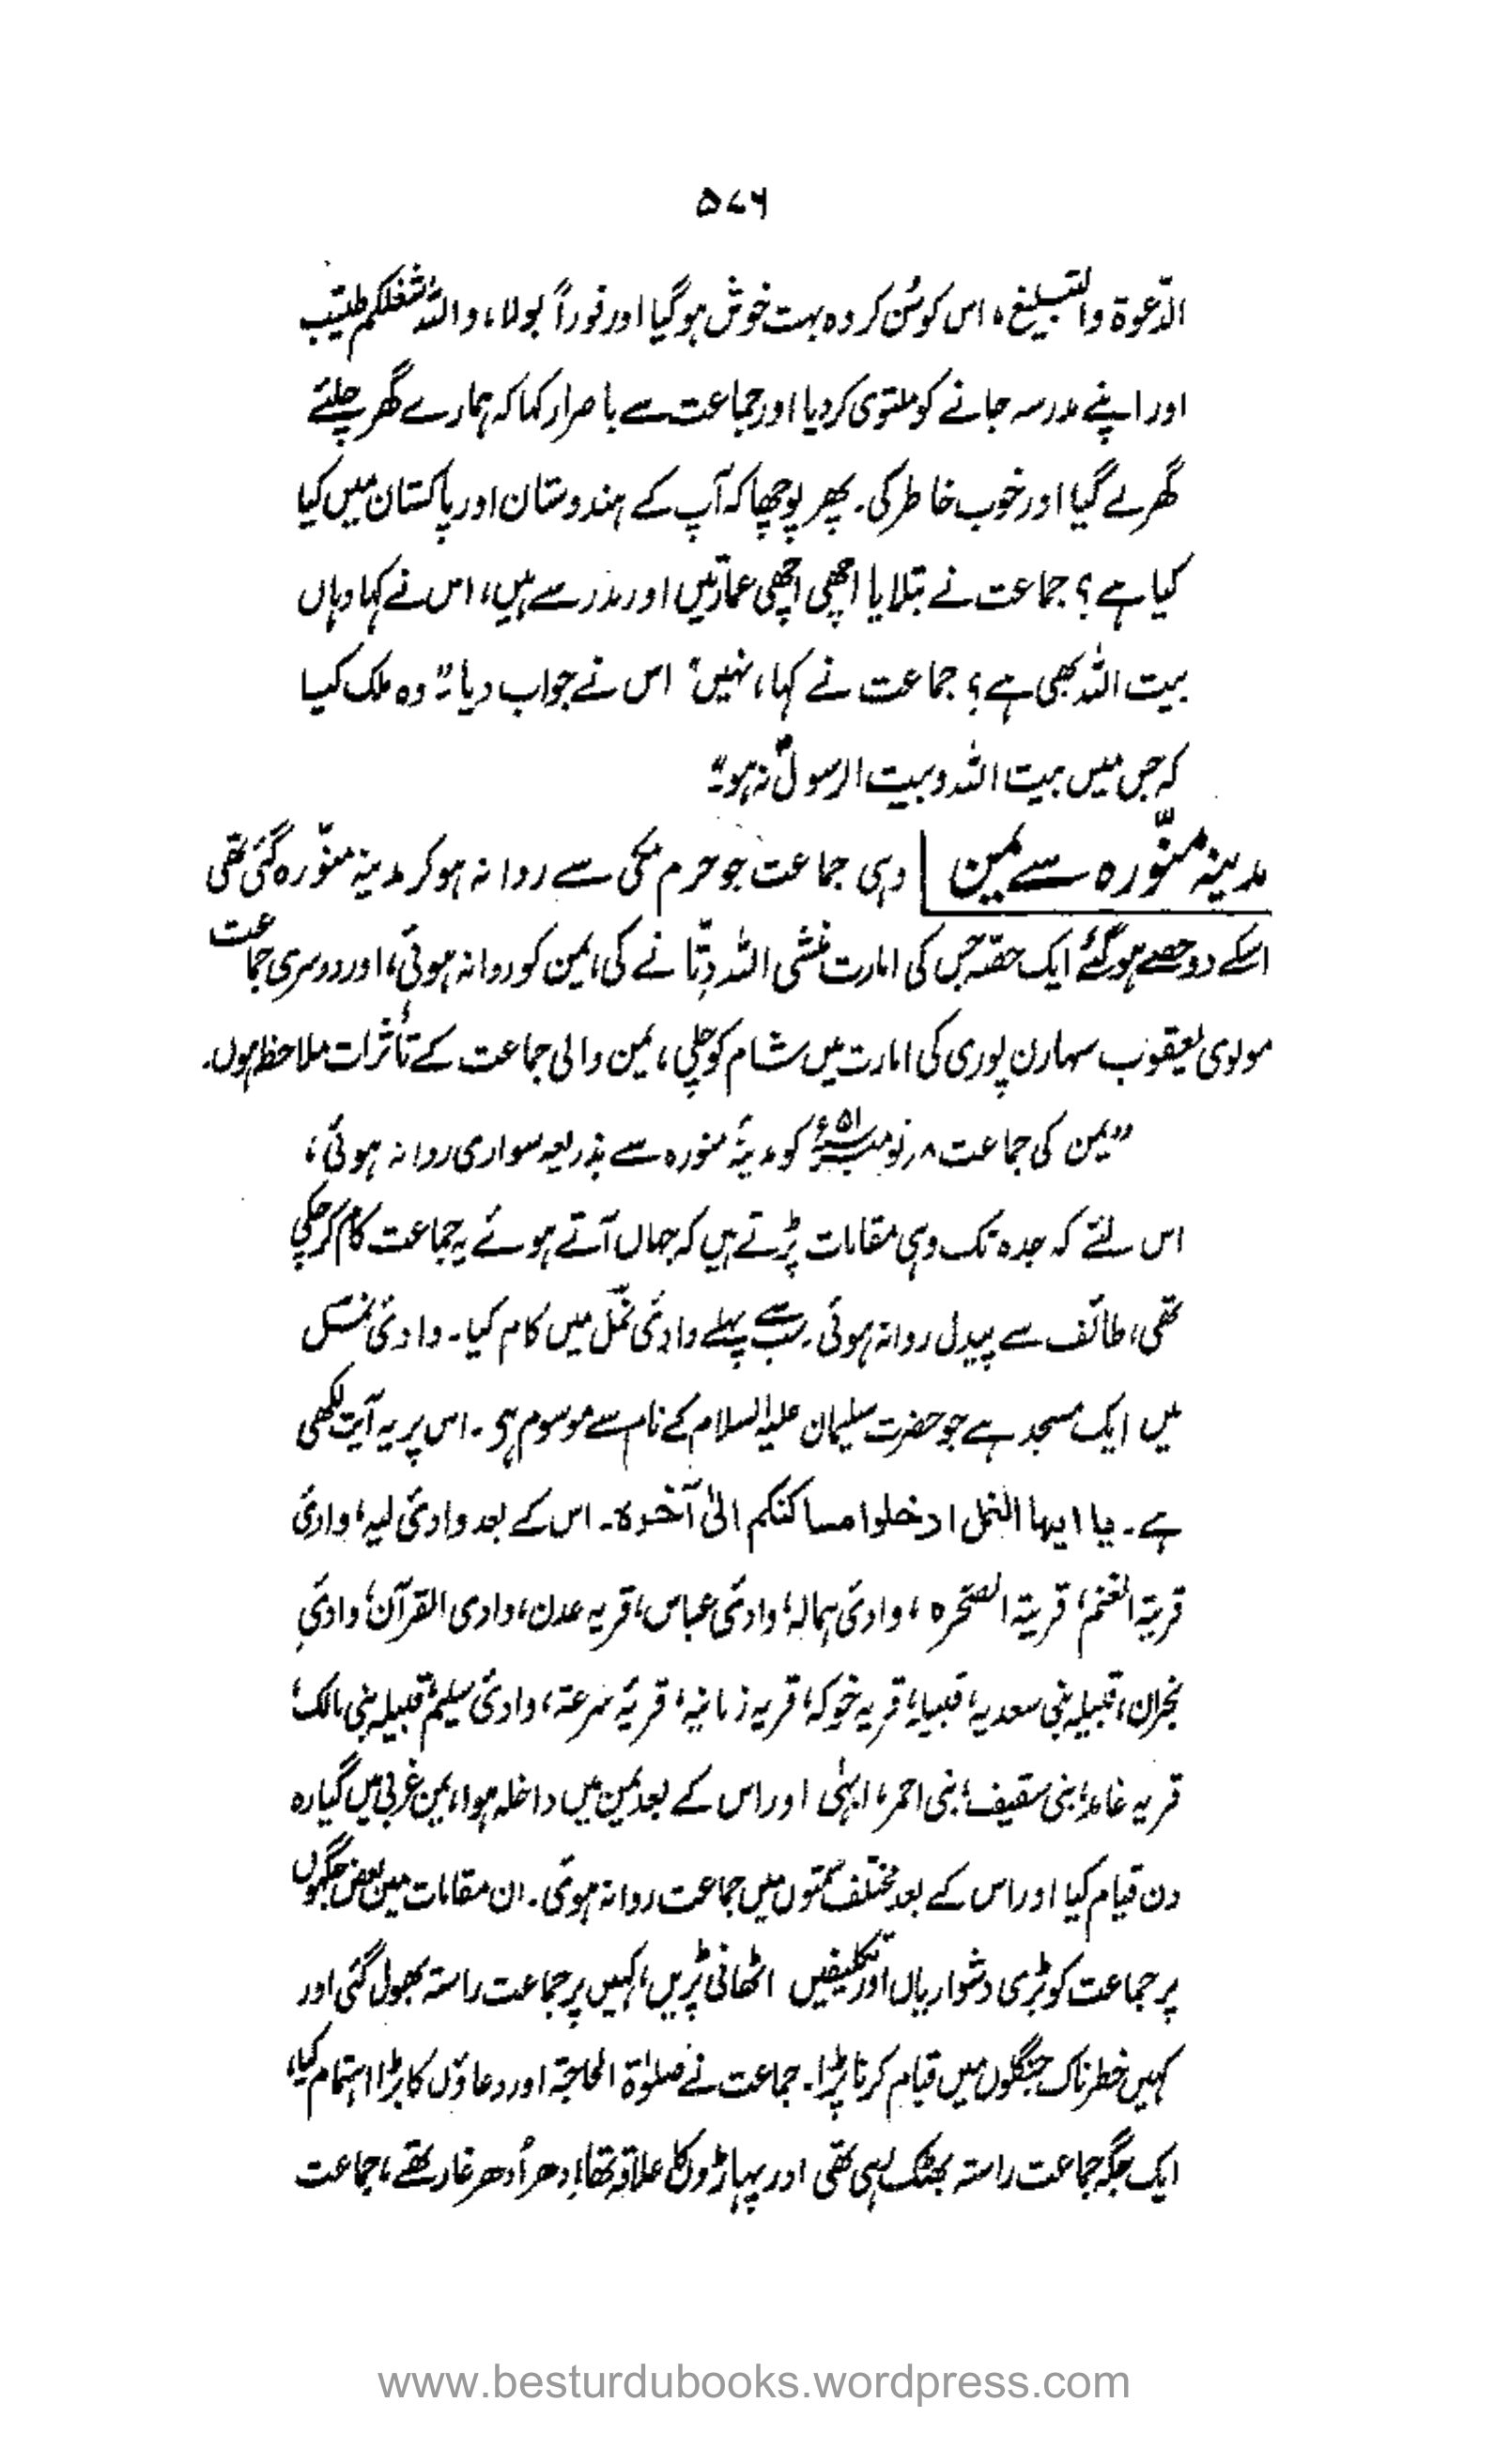 ۵۷۶
الدّعوة والتبليغ، اس کو سُن کر وہ بہت خوش ہو گیا اور فوراً بولا، واللہ شغلکم طیّب
اور اپنے مدرسہ جانے کو ملتوی کر دیا اور جماعت سے باصرار کہا کہ ہمارے گھر چلئے
گھر لے گیا اور خوب خاطر کی۔ پھر پوچھا کہ آپ کے ہندوستان اور پاکستان میں کیا
کیا ہے؟ جماعت نے بتلایا اچھی اچھی عمارتیں اور مدرسے ہیں، اس نے کہا وہاں
بیت اللہ بھی ہے؟ جماعت نے کہا، نہیں، اس نے جواب دیا: "وہ ملک کیسا
کہ جس میں بیت اللہ و بیت الرسولؐ نہ ہو"
مدینہ منوّرہ سے یمن | وہی جماعت جو حرم مکی سے روانہ ہو کر مدینہ منوّرہ گئی تھی
اسکے دو حصے ہو گئے ایک حصّہ جس کی امارت منشی اللہ دتّا نے کی، یمن کو روانہ ہوئی، اور دوسری جماعت
مولوی یعقوب سہارن پوری کی امارت میں شام کو چلی، یمن والی جماعت کے تاثرات ملاحظہ ہوں۔
"یمن کی جماعت ۸ نومبر ۵۱ء کو مدینۂ منورہ سے بذریعہ سواری روانہ ہوئی،
اس لئے کہ جدہ تک وہی مقامات پڑتے ہیں کہ جہاں آتے ہوئے یہ جماعت کام کر چکی
تھی، طائف سے پیدل روانہ ہوئی۔ سب سے پہلے وادیٔ نمل میں کام کیا۔ وادیٔ نمل
میں ایک مسجد ہے جو حضرت سلیمان علیہ السلام کے نام سے موسوم ہی۔ اس پر یہ آیت لکھی
ہے۔ یا ایہا النمل ادخلوا مساکنکم الیٰ آخرہ۔ اس کے بعد وادیٔ لیہ، وادیٔ
قریۃ الغنم، قریۃ الصخرہ، وادیٔ ہمالہ، وادیٔ عباس، قریہ عدن، وادی القرآن، وادیِ
نجران، قبیلہ بنی سعدیہ، قبیلہ، قریہ خوکہ، قریہ زمانیہ، قریۂ سرعۃ، وادیٔ سلیم، قبیلہ بنی مالک،
قریہ غامد، بنی سقیف، بنی احمر، ابہیٰ اور اس کے بعد یمن میں داخلہ ہوا، یمن غربی میں گیارہ
دن قیام کیا اور اس کے بعد مختلف سمتوں میں جماعت روانہ ہوئی۔ ان مقامات میں بعض جگہوں
پر جماعت کو بڑی دشواریاں اور تکلیفیں اٹھانی پڑیں، کہیں پر جماعت راستہ بھول گئی اور
کہیں خطرناک جنگلوں میں قیام کرنا پڑا۔ جماعت نے صلوٰۃ الحاجۃ اور دعاؤں کا بڑا اہتمام کیا،
ایک جگہ جماعت راستہ بھٹک رہی تھی اور پہاڑوں کا علاقہ تھا، اِدھر اُدھر غار تھے، جماعت
www.besturdubooks.wordpress.com